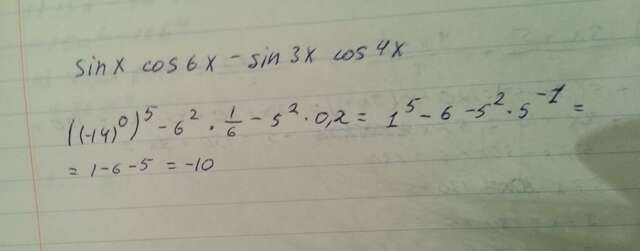 sin x cos 6x - sin 3x cos 4x
((-14)^0)^5 - 6^2 · 1/6 - 5^2 · 0,2 = 1^5 - 6 - 5^2 · 5^-1 =
= 1 - 6 - 5 = -10